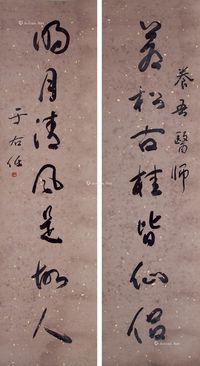 養吾醫師
蒼松古桂皆仙侶
明月清風是故人
于右任